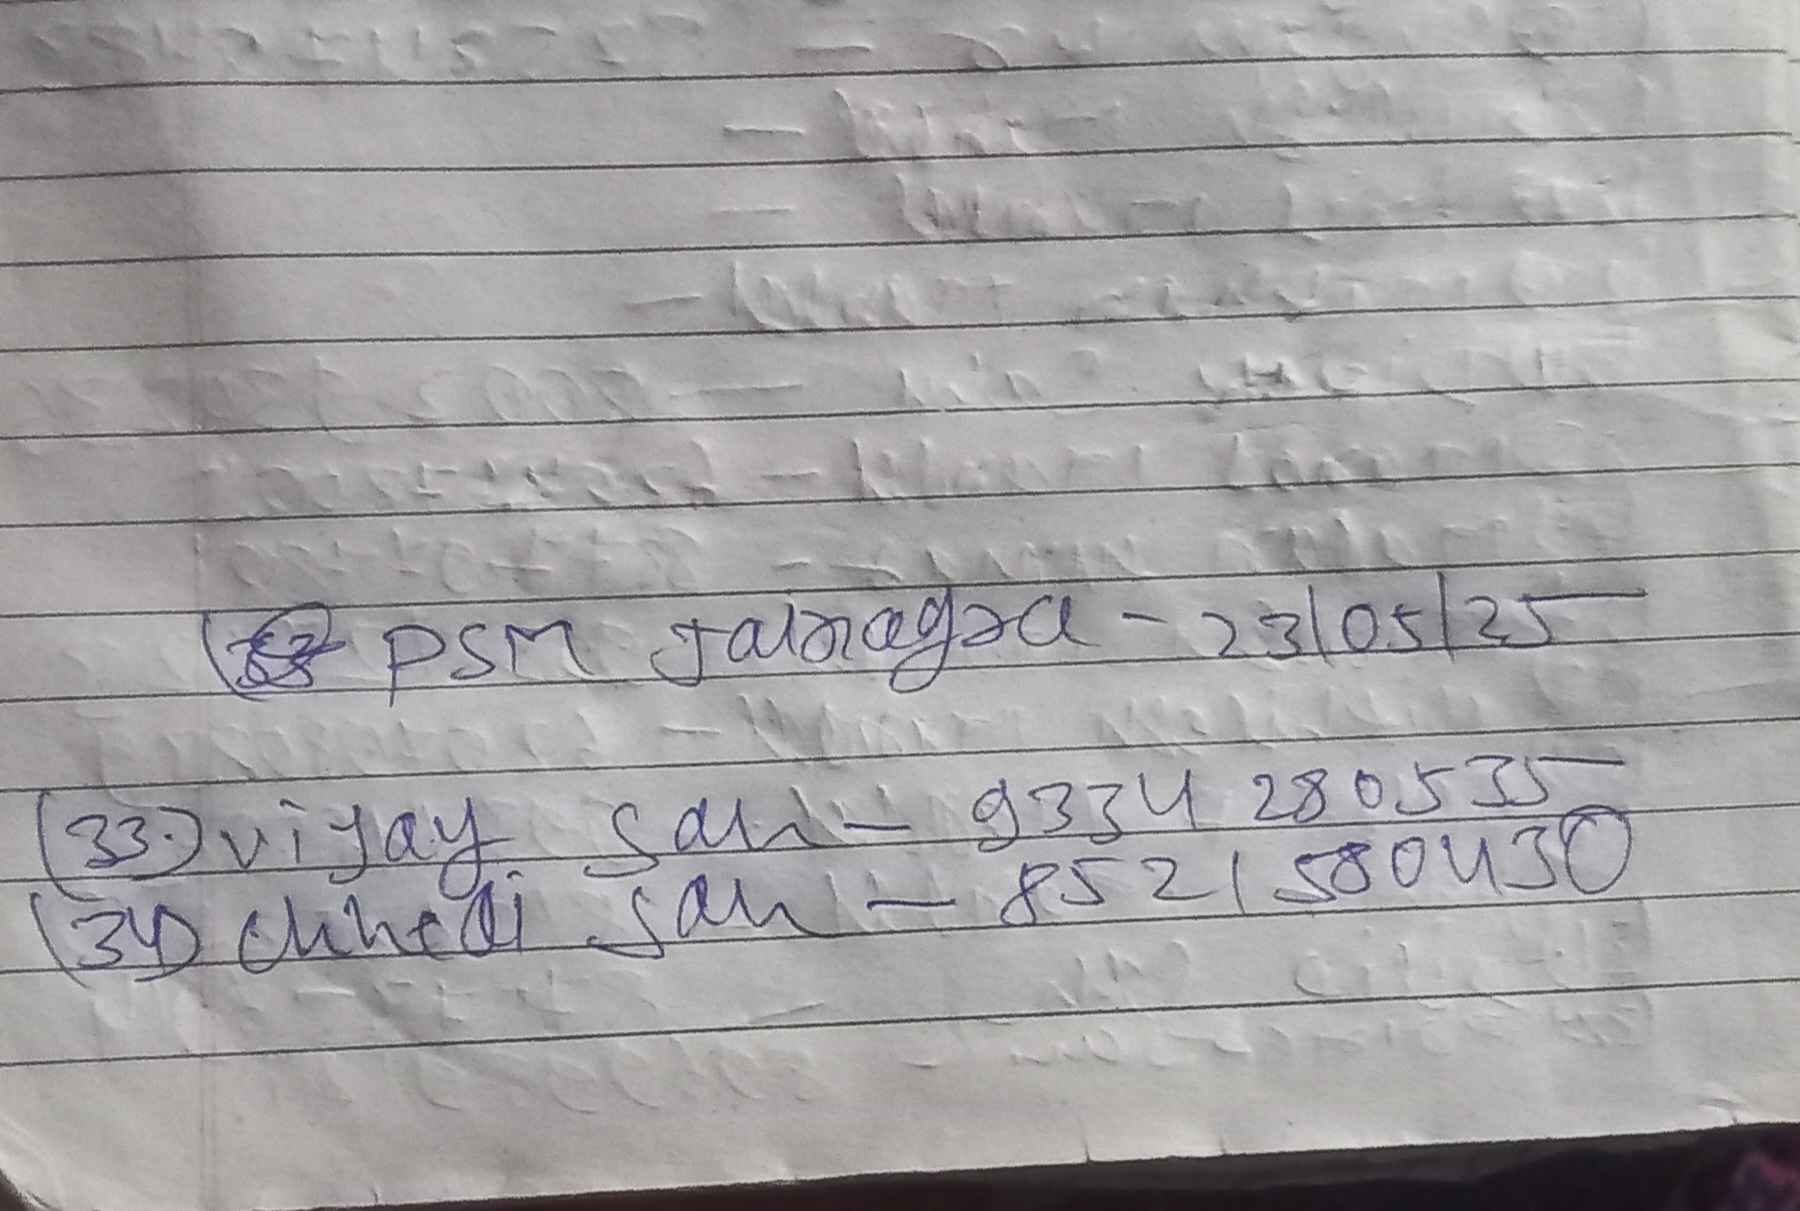 PSM Jalnagra - 23/05/25
(33.) vijay sah - 9334280535
(34) chhedi sah - 8521580430